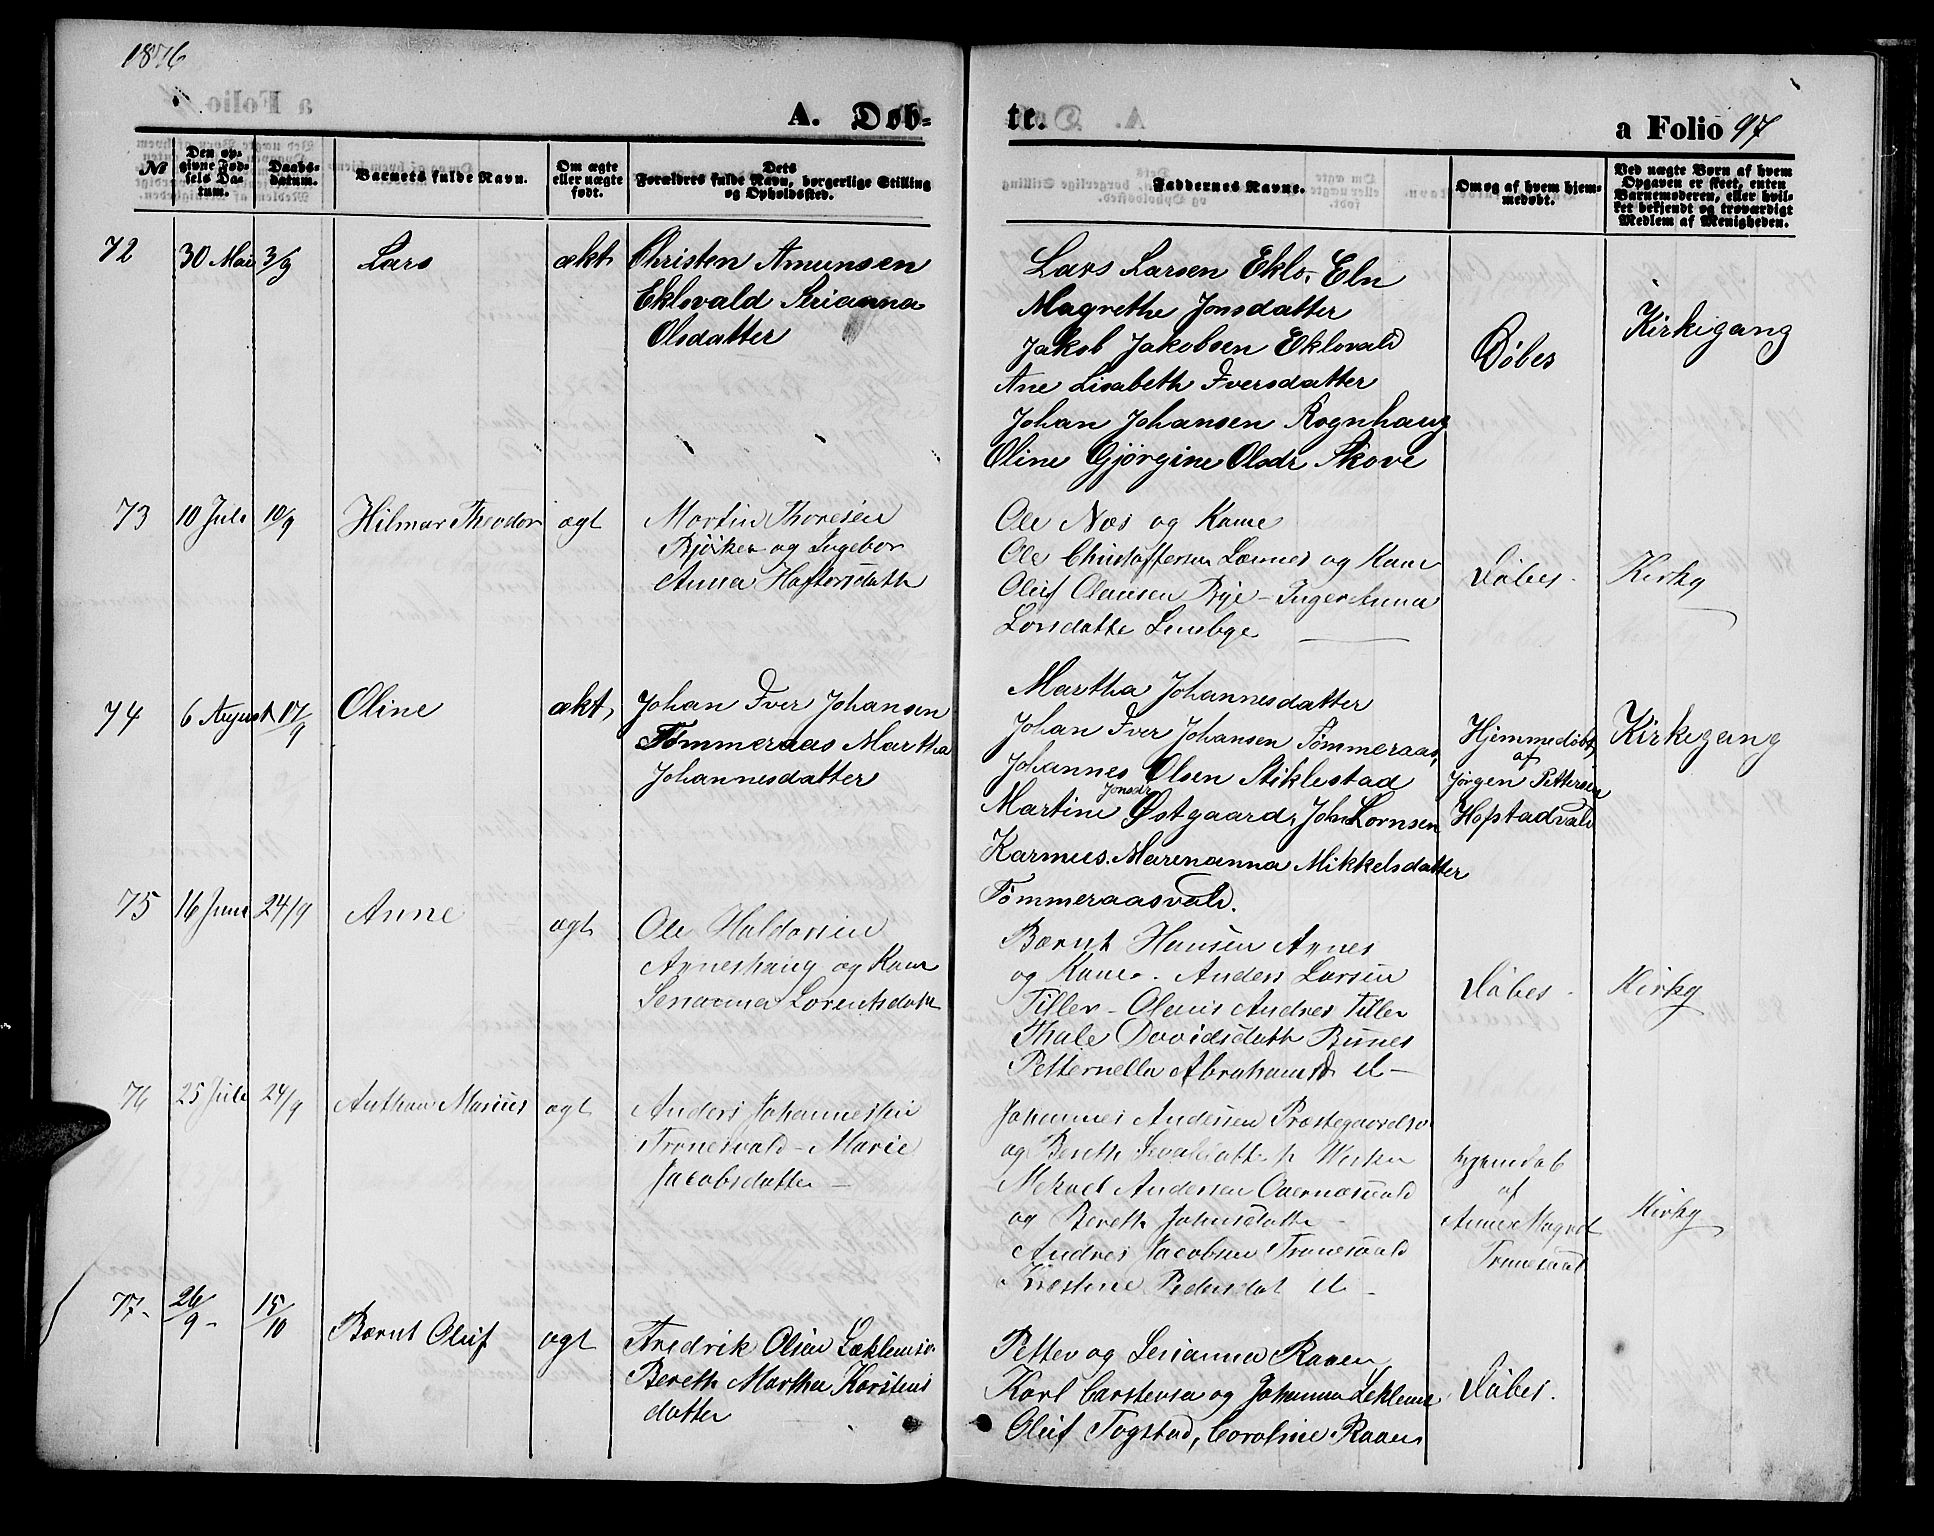 1876
A. Døb-
te.
a Folio 97
№
Den op-
givne Fød-
sels Da-
tum.
Daabs-
datum.
Barnets fulde Navn.
Om ægte
eller uægte
født.
Dets
Forældres fulde Navn, borgerlige Stilling
og Opholdssted.
Faddernes Navne.
Om og af hvem hjem-
medøbt.
Ved uægte Børn af hvem
Opgaven er skeet, enten
Barnemoderen, eller hvil-
ket bekjendt og troværdigt
Medlem af Menigheden.
72
30 Mai
3/9
Lars
ækt
Christen Amunsen
Eklovald Serianna
Olsdatter
Lars Larsen Eklo, Eln
Magrethe Jonsdatter
Jakob Jakobsen Eklovald
Ane Lisabeth Iversdatter
Johan Johansen Rognhaug
Oline Gjørgine Olsdr Skove
Døbes
Kirkegang
73
10 Juli
10/9
Hilmar Theodor
ægt
Martin Thoresen
Bjørken og Ingebor
Anna Haftorsdatte
Ole Næs og Kane
Ole Christoffersen Lænnes og Kane
Oluf Olausen Rye - Inger Anna
Larsdatte
Døbes.
Kirkg
74
6 August
17/9
Oline
ækt,
Johan Iver Johansen
Tømmeraas Martha
Johannesdatter
Martha Johannesdatter
Johan Iver Johansen Tømmeraas,
Johannes Olsen Stiklestad
Jonsdr
Martine Østgaard, John Lornsen
Karmus. Marenanna Mikkelsdatter
Tømmeraasvald.
Hjemmedøbt
af
Jørgen Pettersen
Hofstadvald
Kirkegang
75
16 Juni
24/9
Anne
ægt
Ole Haldorsen
Agneshaug og Kane
Serianna Lorentsdatte
Bærnt Hansen Agnes
og Kane. Anders Larsen
Tiller - Olaus Andres Tiller
Thale Davidsdatte Bunes
Petternella Abrahamsd
Døbes -
Kirkg
76
25 Juli
24/9
Anthon Marius
ægt
Anders Johannessen
Tronesvald - Marie
Jacobsdatter -
Johannes Andersen
og Bereth
Mekael Andersen Overnæsvald
og Bereth Johnsdatte -
Andres Jacobsen Tronesvald
Kirstine Pedersdat
hjemdøb
af
Anne Magret
Kirkg
77-
26/9-
15/10
Bærnt Oluf
ægt
Fredrik Olsen
Bereth Martha Karstens
datter
Petter og Serianna Raaen
Karl Carstensen og Johanna
Oluf Togstad, Caroline Raaen
Døbes.